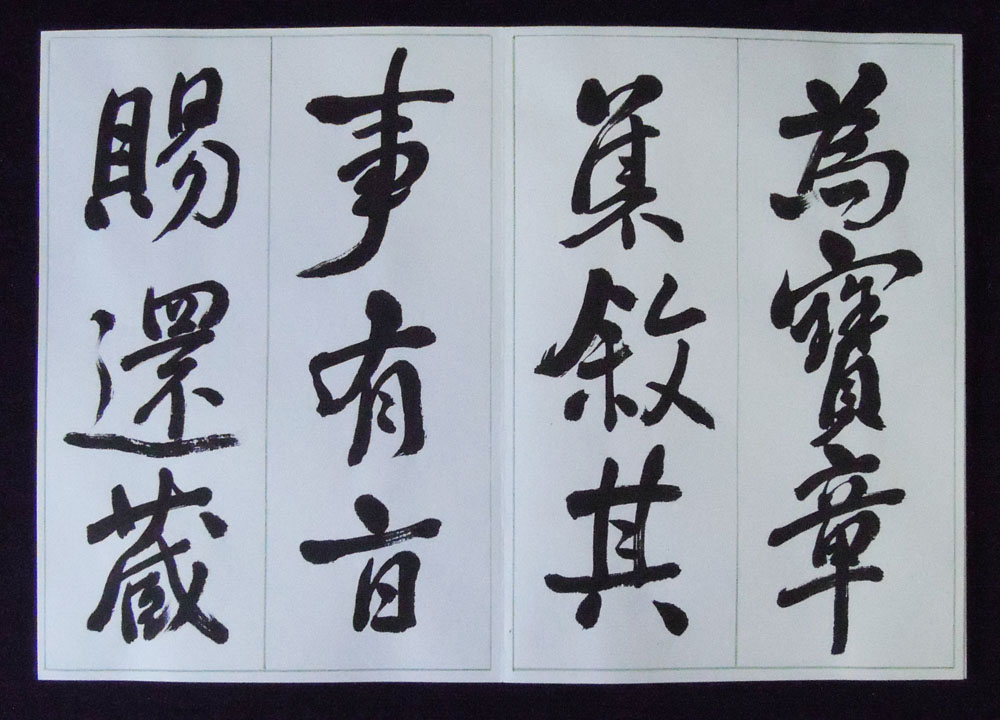 為寶章
集敘其
事有旨
賜還藏